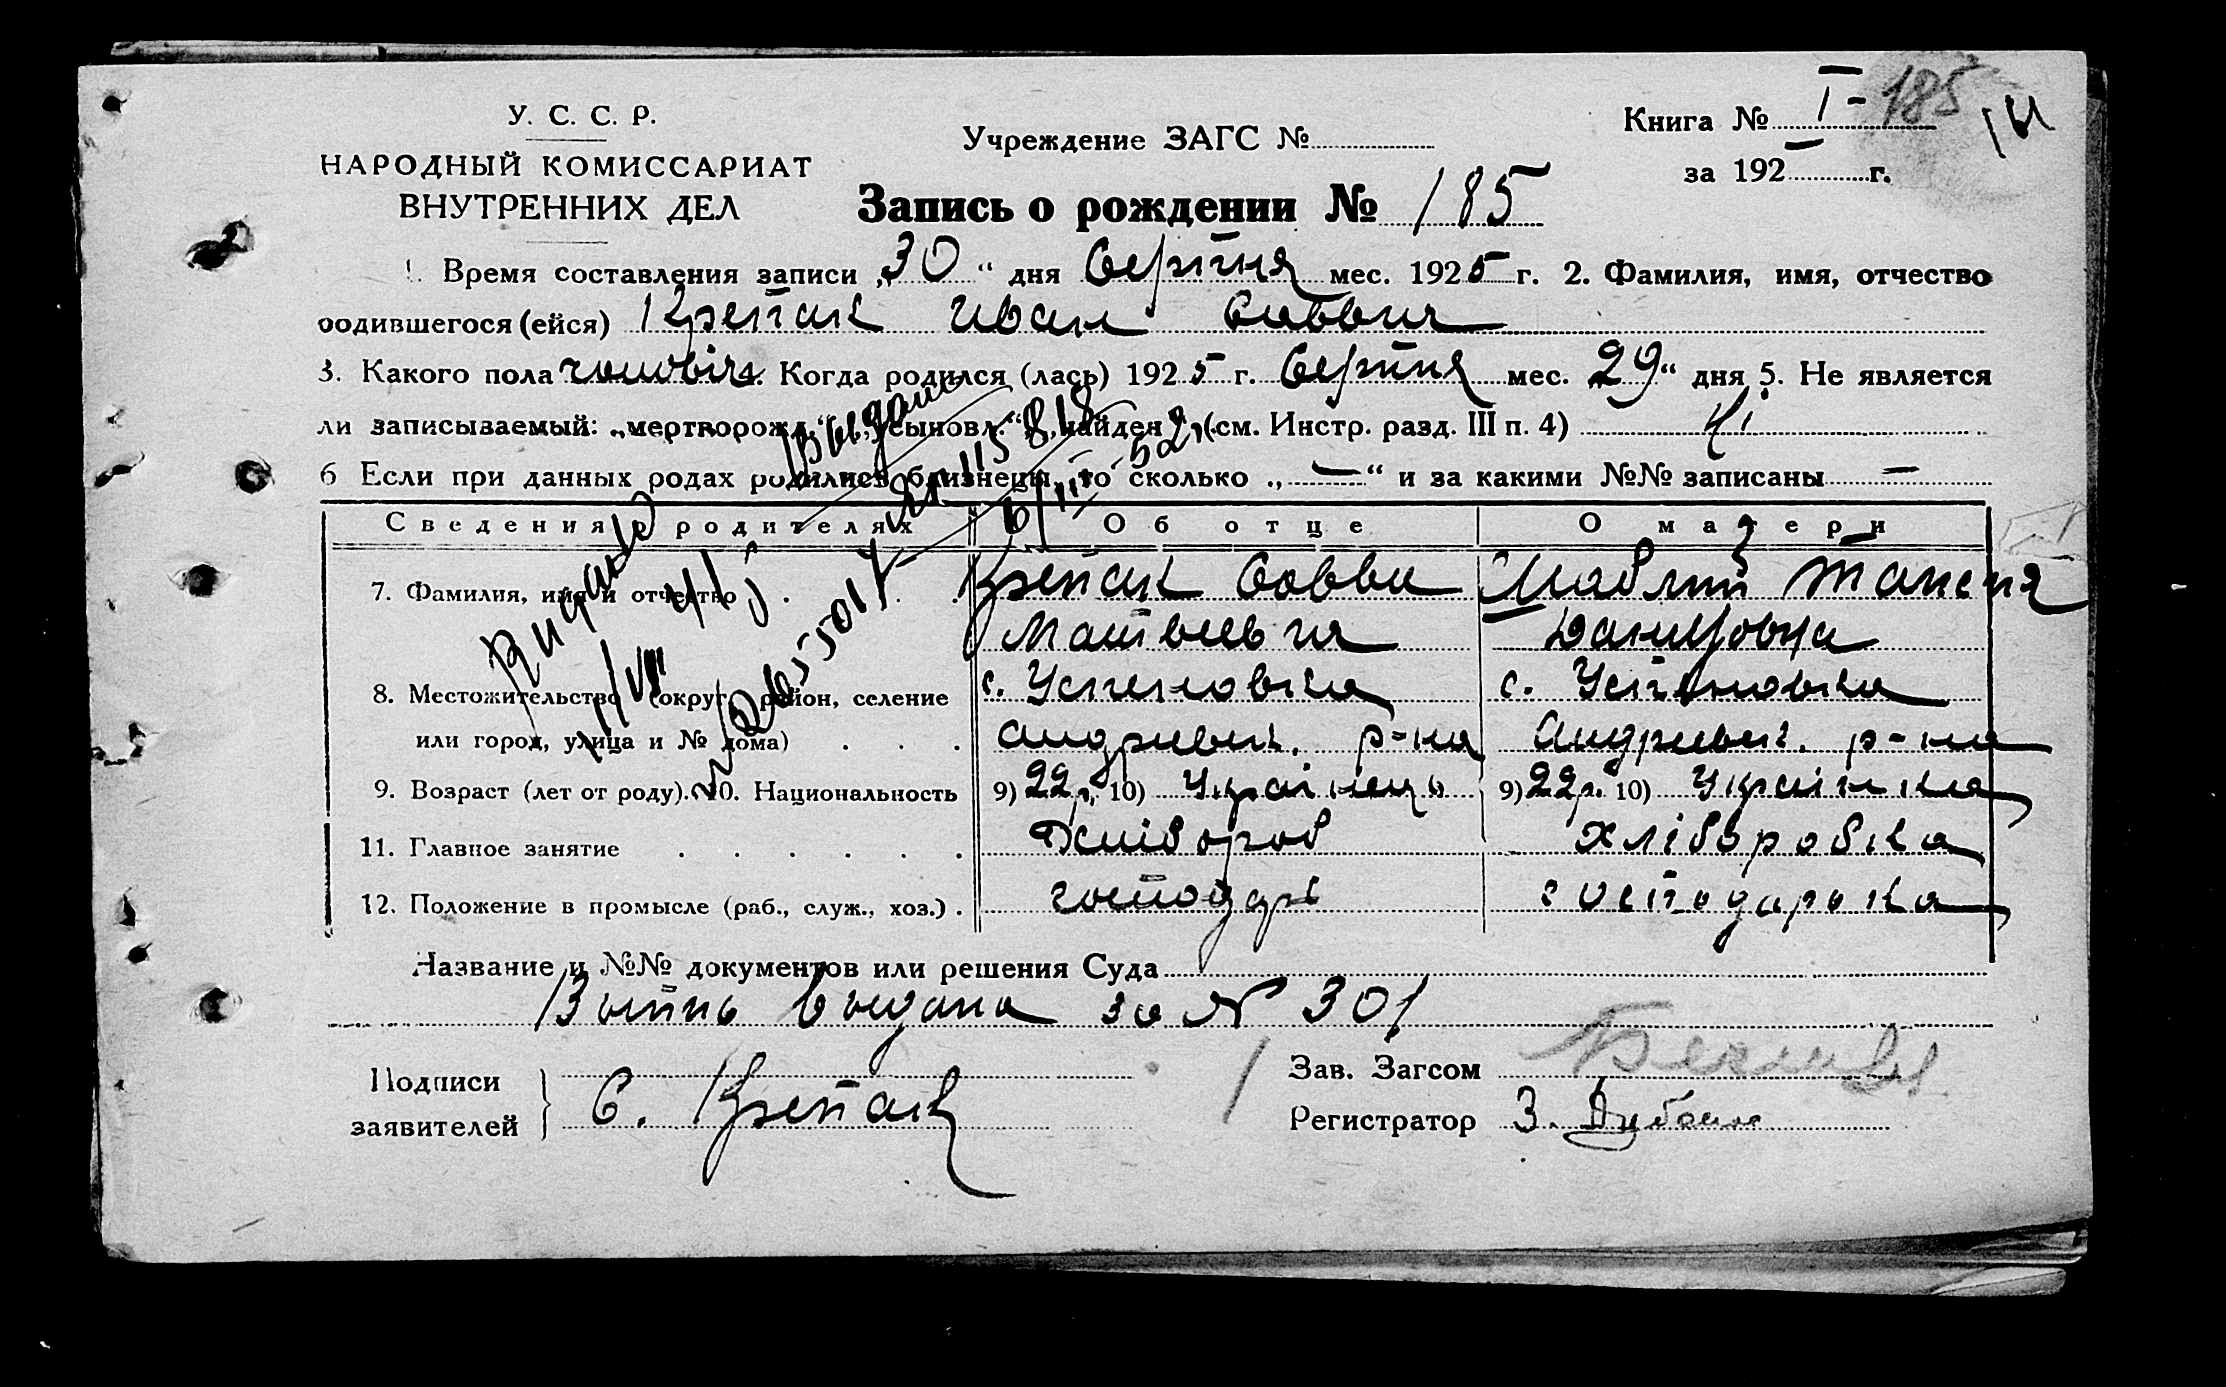 У. С. С. Р.
НАРОДНЫЙ КОМИССАРИАТ
ВНУТРЕННИХ ДЕЛ
Учреждение ЗАГС №
Книга № I - 185
за 192 г.
Запись о рождении № 185
1. Время составления записи „30“ дня Серпня мес. 1925 г. 2. Фамилия, имя, отчество
родившегося (ейся) Крепак Иван Саввич
3. Какого пола чоловіч 4. Когда родился (лась) 1925 г. Серпня мес. 29“ дня 5. Не является
ли записываемый: „мертворожд.“, „усыновл.“, „найден“, (см. Инстр. разд. III п. 4) Ні
6 Если при данных родах родились близнецы, то сколько „—“ и за какими №№ записаны —
Сведения о родителях Об отце О матери
7. Фамилия, имя и отчество . . . Крепак Савва
Матвиевич
8. Местожительство (округ, район, селение с. Успеновка с. Успеновка
или город, улица и № дома) . . . Андриевск. р-на Андриевск. р-на
9. Возраст (лет от роду). 10. Национальность 9) 22 р. 10) Українець 9) 22 р. 10) Українка
11. Главное занятие . . . . . . Хлібороб Хліборобка
12. Положение в промысле (раб., служ., хоз.) . господарь господарька
Название и №№ документов или решения Суда
Выпись выдана за № 301
Подписи
заявителей } С. Крепак
Зав. Загсом
Регистратор З.
Выдано
Видано